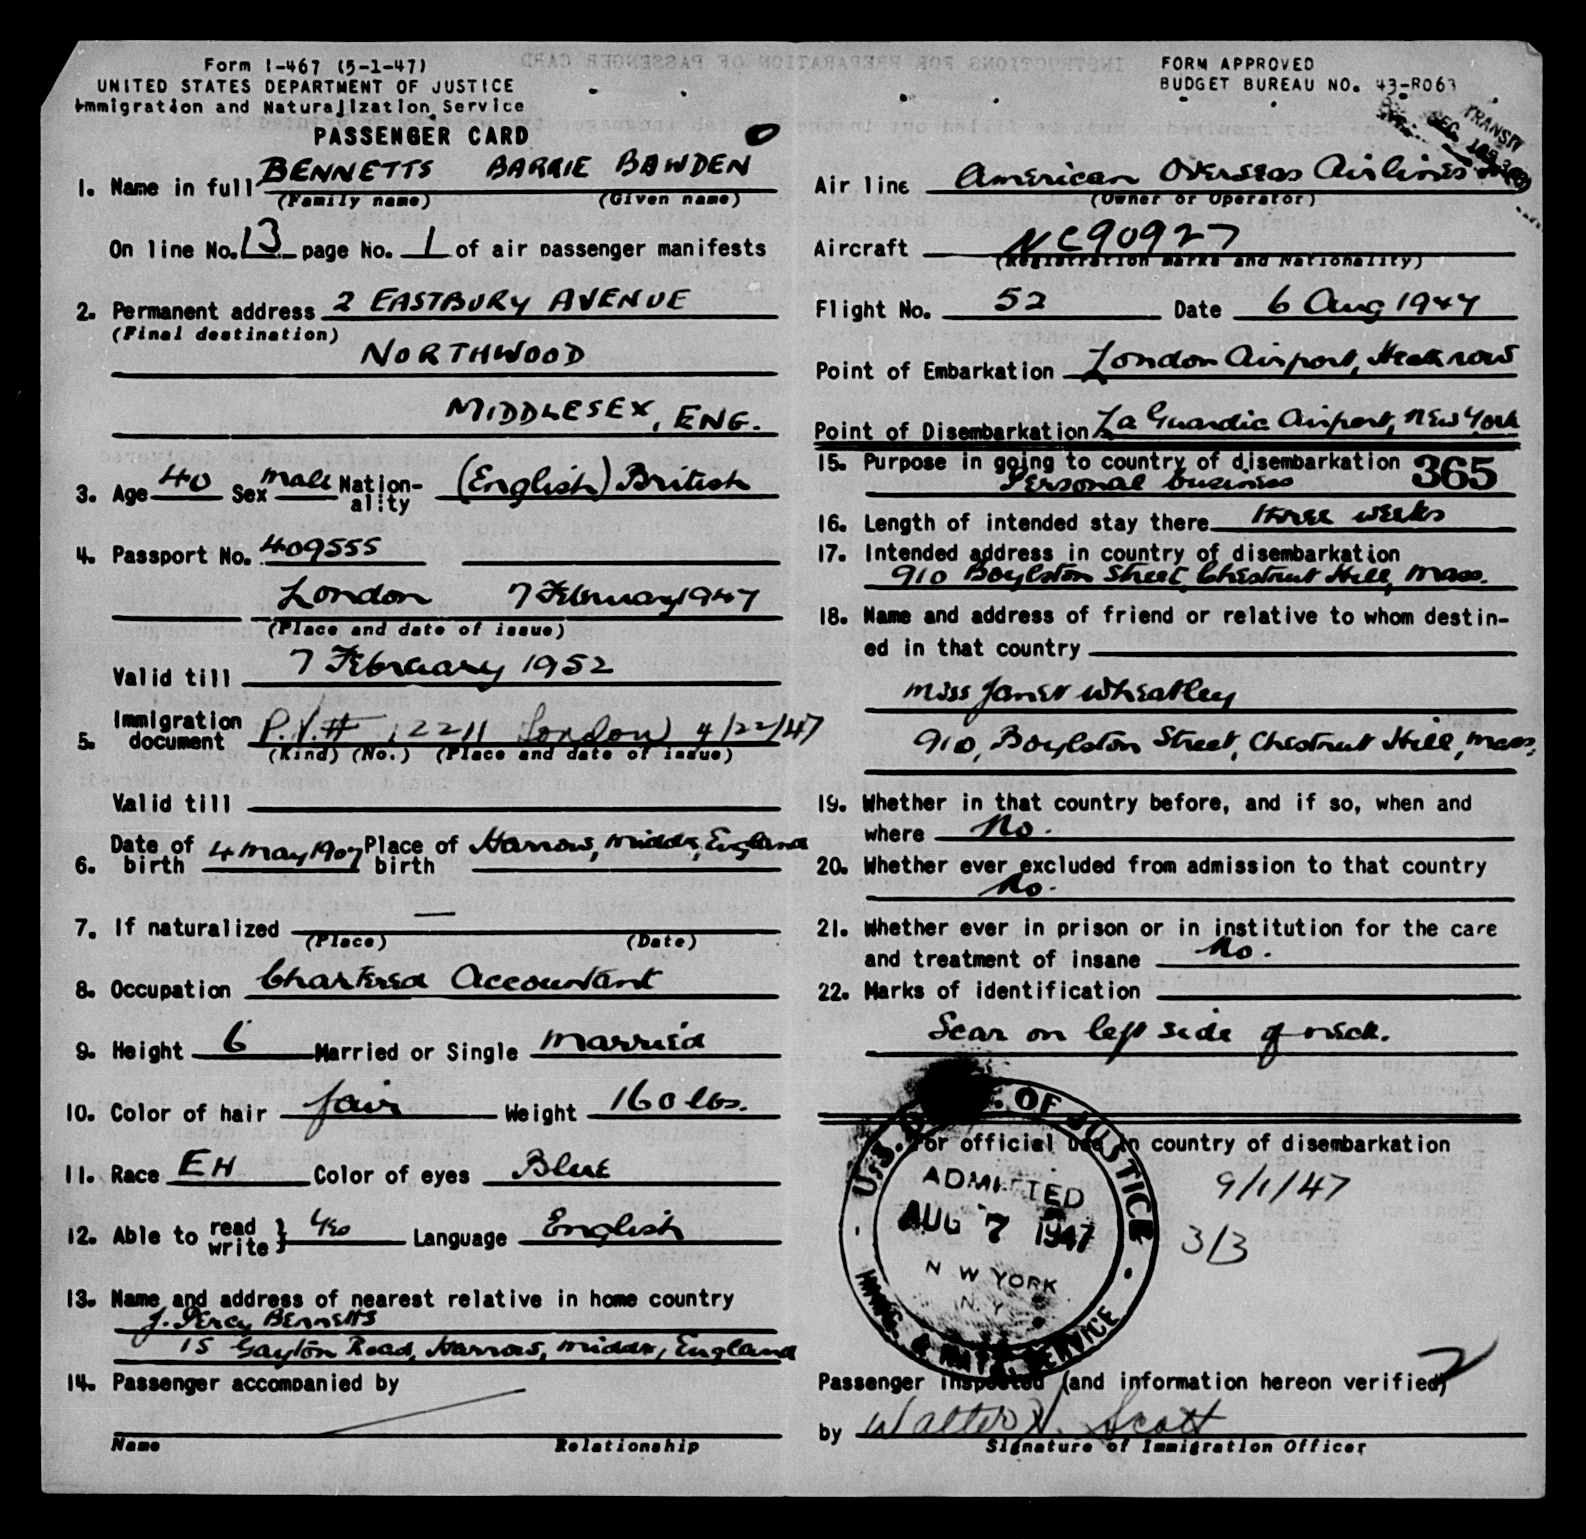 Form I-467 (5-1-47)
UNITED STATES DEPARTMENT OF JUSTICE
Immigration and Naturalization Service
PASSENGER CARD
O
1. Name in full BENNETTS BARRIE BAWDEN
(Family name) (Given name)
On line No. 13 page No. 1 of air passenger manifests
2. Permanent address 2 EASTBURY AVENUE
(Final destination)
NORTHWOOD
MIDDLESEX, ENG.
3. Age 40 Sex Male Nation-
ality (English) British
4. Passport No. 409555
London 7 February 1947
(Place and date of issue)
Valid till 7 February 1952
5. Immigration
document P.V.# 12211 London 4/22/47
(Kind) (No.) (Place and date of issue)
Valid till
6. Date of
birth 4 May 1907 Place of
birth Harrow, Middx, England
7. If naturalized —
(Place) (Date)
8. Occupation Chartered Accountant
9. Height 6 Married or Single Married
10. Color of hair fair Weight 160 lbs.
11. Race EH Color of eyes Blue
12. Able to read
write } Yes Language English
13. Name and address of nearest relative in home country
J. Percy Bennetts
15 Gayton Road, Harrow, Middx, England
14. Passenger accompanied by
Name Relationship
FORM APPROVED
BUDGET BUREAU NO. 43-R063
TRANSIT
SEC.
Air line American Overseas Airlines
(Owner or Operator)
Aircraft NC90927
(Registration marks and Nationality)
Flight No. 52 Date 6 Aug 1947
Point of Embarkation London Airport, Heathrow
Point of Disembarkation La Guardia Airport, New York
15. Purpose in going to country of disembarkation 365
Personal business
16. Length of intended stay there three weeks
17. Intended address in country of disembarkation
910 Boylston Street, Chestnut Hill, Mass.
18. Name and address of friend or relative to whom destin-
ed in that country
Miss Janet Wheatley
910, Boylston Street, Chestnut Hill, Mass,
19. Whether in that country before, and if so, when and
where No.
20. Whether ever excluded from admission to that country
No.
21. Whether ever in prison or in institution for the care
and treatment of insane No.
22. Marks of identification
Scar on left side of neck.
For official use in country of disembarkation
U.S. OF JUSTICE
ADMITTED
AUG 7 1947
N W YORK
N. Y.
IMMG. & NATZ. SERVICE
9/1/47
3/3
Passenger inspected (and information hereon verified)
by Walter H. Scott
Signature of Immigration Officer